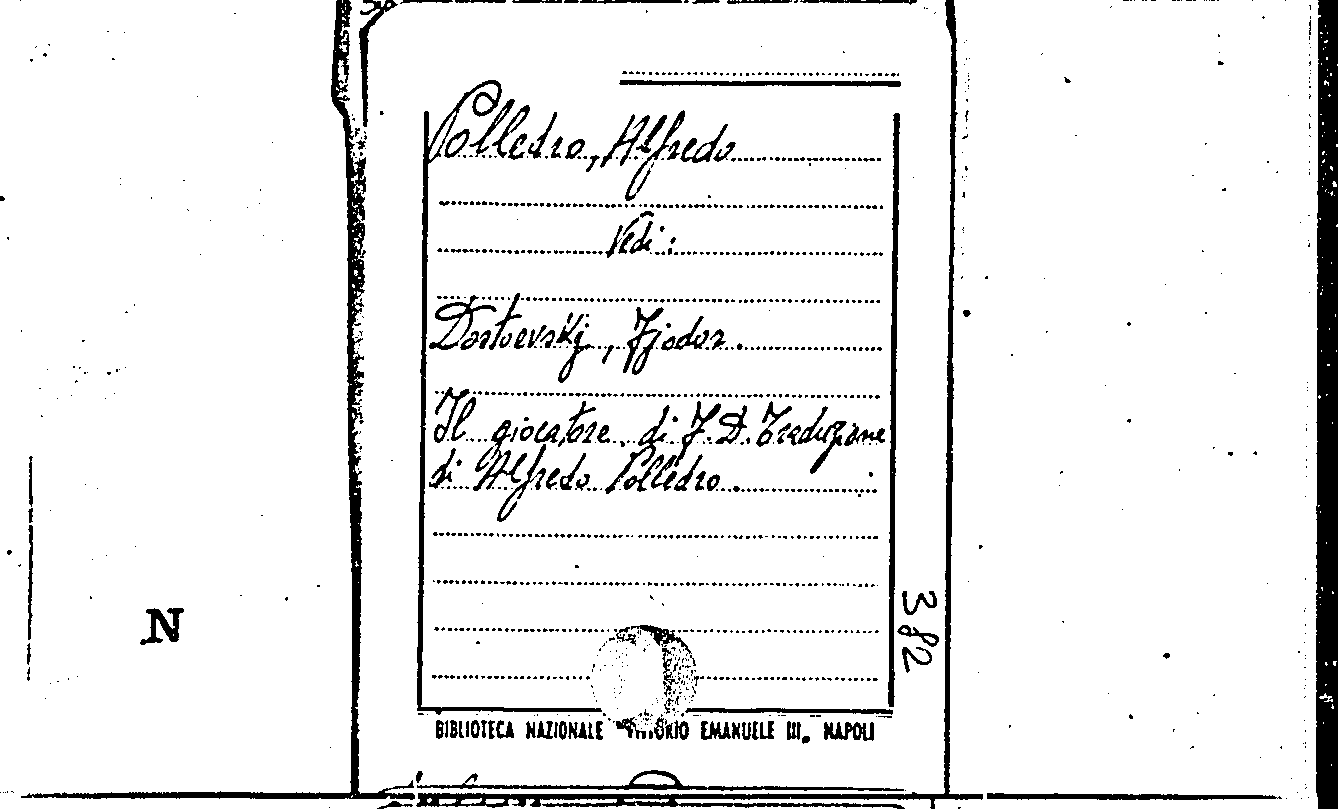 Polledro, Alfredo
Vedi:
Dostoevskj, Fjodor.
Il giocatore di F. D. Traduzione
di Alfredo Polledro.
382
N
BIBLIOTECA NAZIONALE "VITTORIO EMANUELE III" NAPOLI